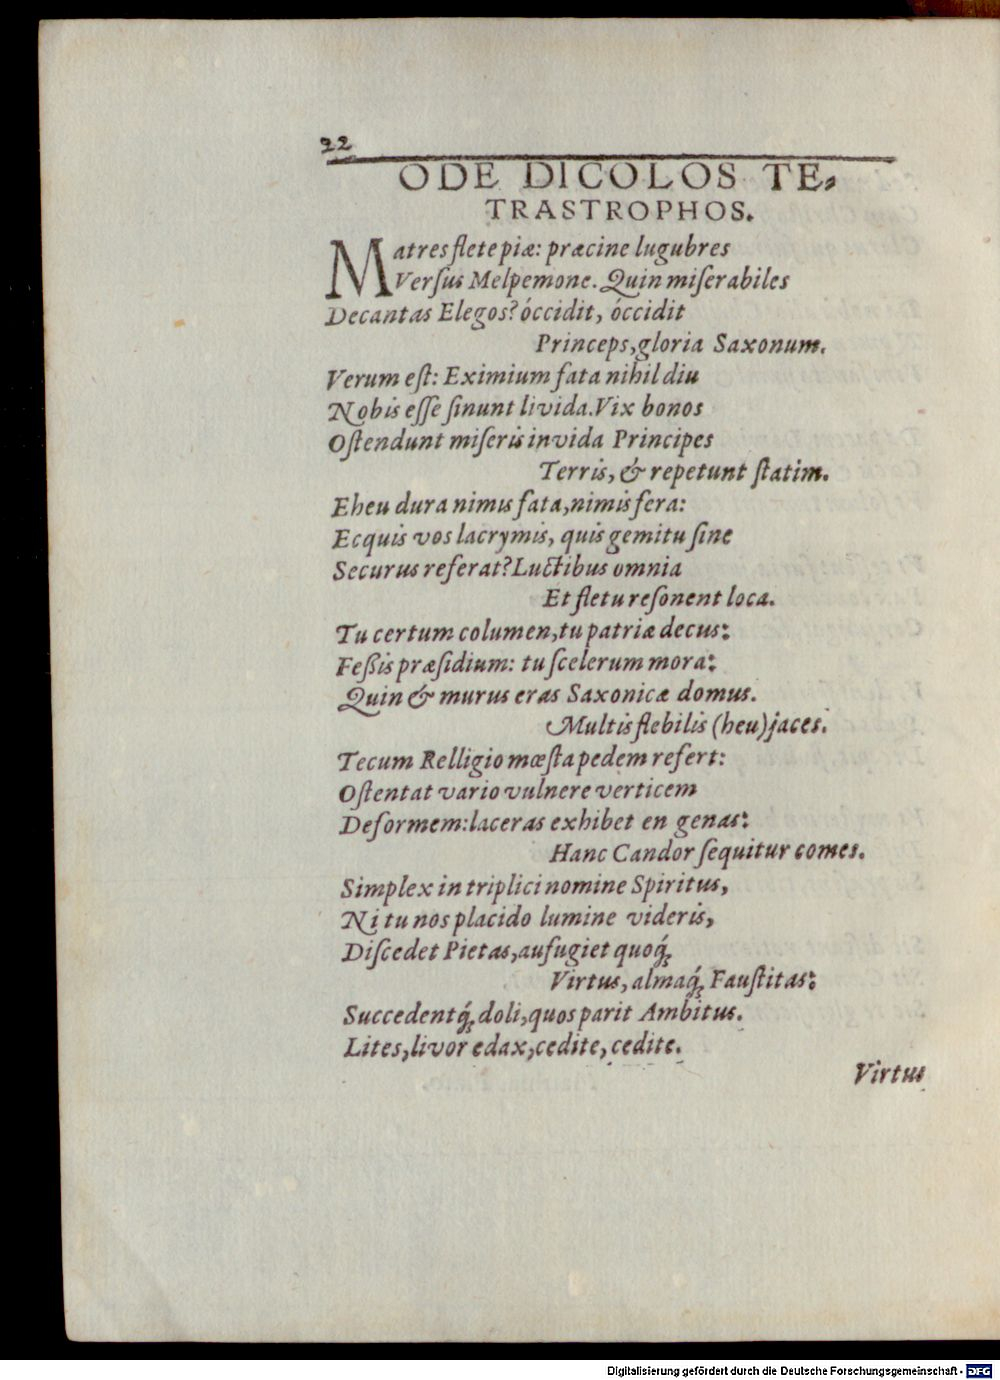 22
ODE DICOLOS TE-
TRASTROPHOS.
Matres flete piæ: præcine lugubres
Versus Melpemone. Quin miserabiles
Decantas Elegos? óccidit, óccidit
Princeps, gloria Saxonum.
Verum est: Eximium fata nihil diu
Nobis esse sinunt livida. Vix bonos
Ostendunt miseris invida Principes
Terris, & repetunt statim.
Eheu dura nimis fata, nimis fera:
Ecquis vos lacrymis, quis gemitu sine
Securus referat? Luctibus omnia
Et fletu resonent loca.
Tu certum columen, tu patriæ decus:
Feßis præsidium: tu scelerum mora:
Quin & murus eras Saxonicæ domus.
Multis flebilis (heu) jaces.
Tecum Relligio mœsta pedem refert:
Ostentat vario vulnere verticem
Deformem: laceras exhibet en genas:
Hanc Candor sequitur comes.
Simplex in triplici nomine Spiritus,
Ni tu nos placido lumine videris,
Discedet Pietas, aufugiet quoq́;
Virtus, almaq́; Faustitas:
Succedentq́; doli, quos parit Ambitus.
Lites, livor edax, cedite, cedite.
Virtus
Digitalisierung gefördert durch die Deutsche Forschungsgemeinschaft - DFG